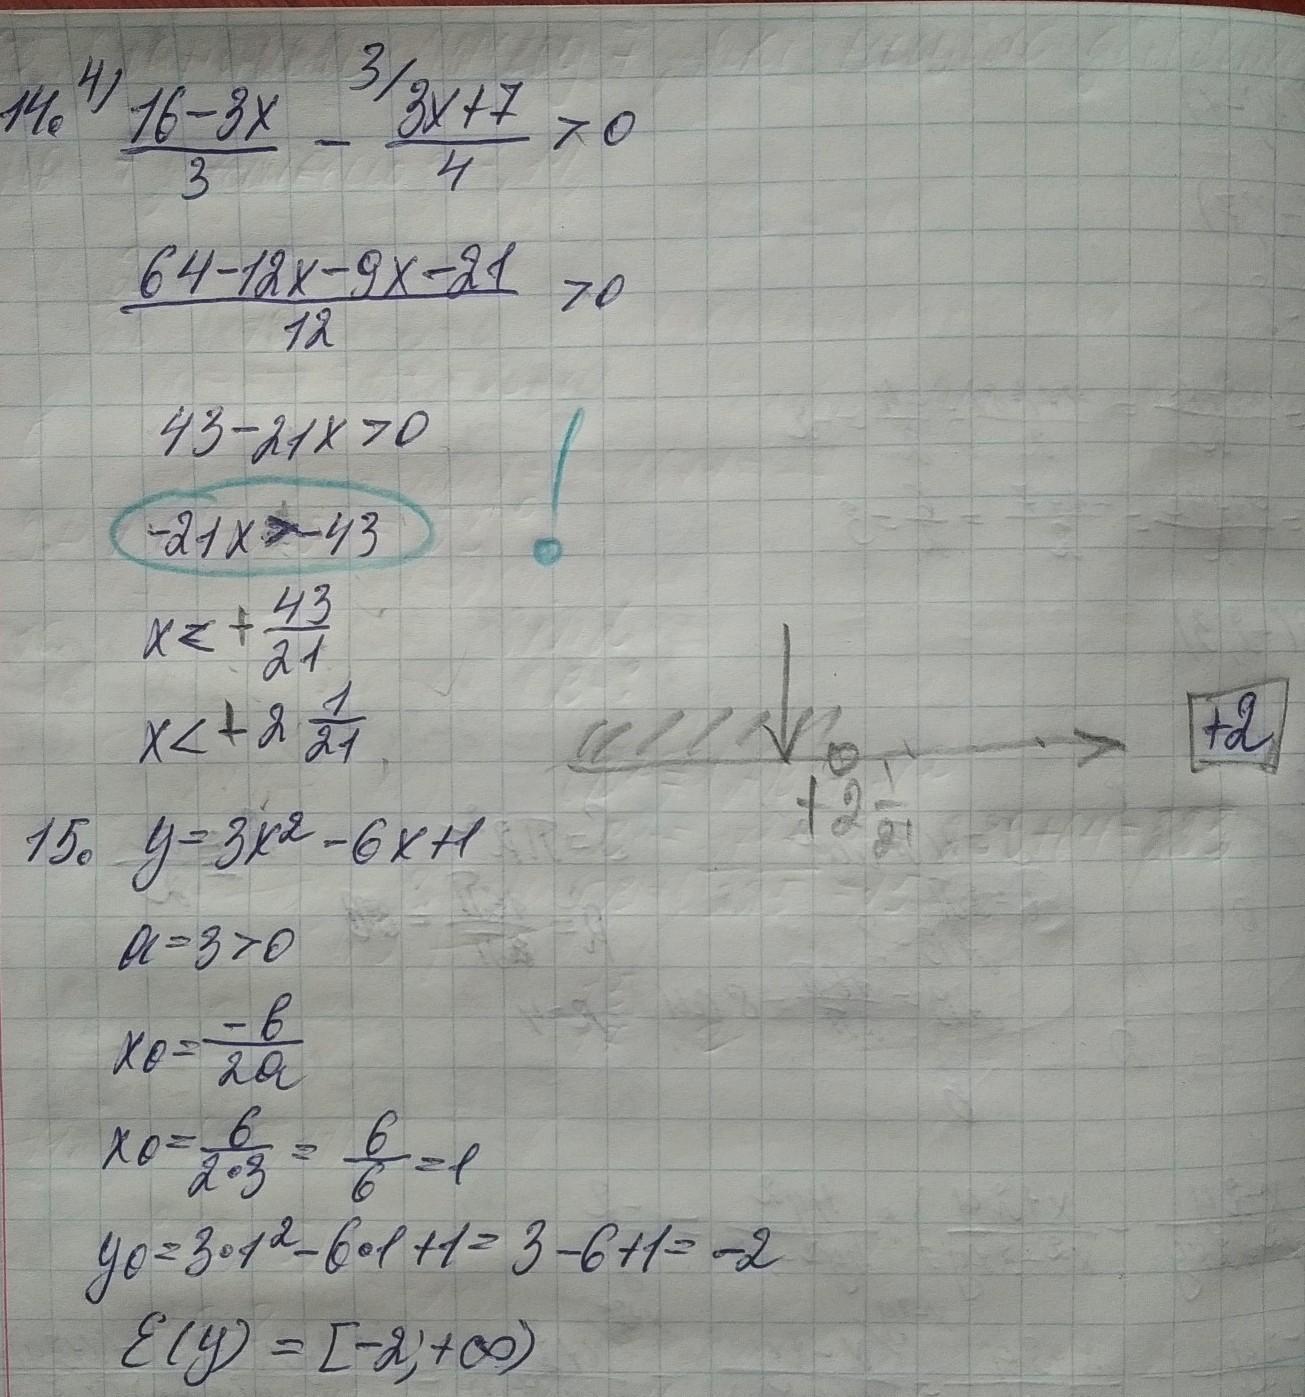 14. 4) (16-3x)/3 - 3/ (3x+7)/4 > 0
(64-12x-9x-21)/12 > 0
43-21x>0
-21x>-43 !
x< + 43/21
x< + 2 1/21
+2 1/21
+2
15. y=3x²-6x+1
a=3>0
x0= -b/2a
x0= 6/(2•3) = 6/6 =1
y0=3•1²-6•1+1=3-6+1=-2
E(y) = [-2;+∞)